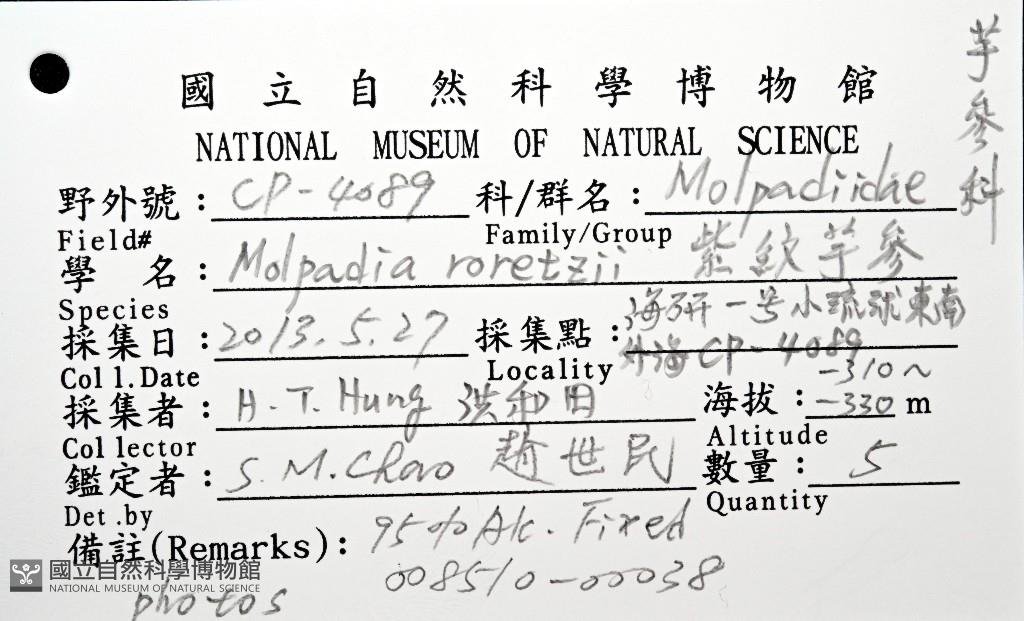 國立自然科學博物館
NATIONAL MUSEUM OF NATURAL SCIENCE
芋參科
野外號：CP-4089 科/群名：Molpadiidae
Field# Family/Group
學名：Molpadia roretzii 紫紋芋參
Species
採集日：2013.5.27 採集點：海研一号小琉球東南
外海 CP-4089
Coll.Date Locality
-310~
採集者：H.T. Hung 洪和田 海拔：-330 m
Collector Altitude
鑑定者：S.M. Chao 趙世民 數量：5
Det.by Quantity
備註(Remarks)：95% Alc. Fixed
008510-00038
photos
國立自然科學博物館
NATIONAL MUSEUM OF NATURAL SCIENCE